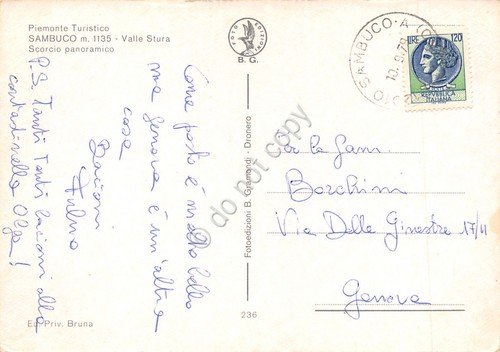 Piemonte Turistico
SAMBUCO m. 1135 - Valle Stura
Scorcio panoramico
FOTO EDIZIONI
B. G.
SAMBUCO - A
LIRE 120
REPUBBLICA
ITALIANA
Come posto è molto bello
ma Genova è un'altra
cosa
Bacioni
P.S. Tanti Tanti bacioni alla
contadinella Olga!
Fotoedizioni B. Gramondi - Dronero
Per la Fam.
Borchini
Via Delle Ginestre 17/11
Genova
Ed. Priv. Bruna
236
© do not copy